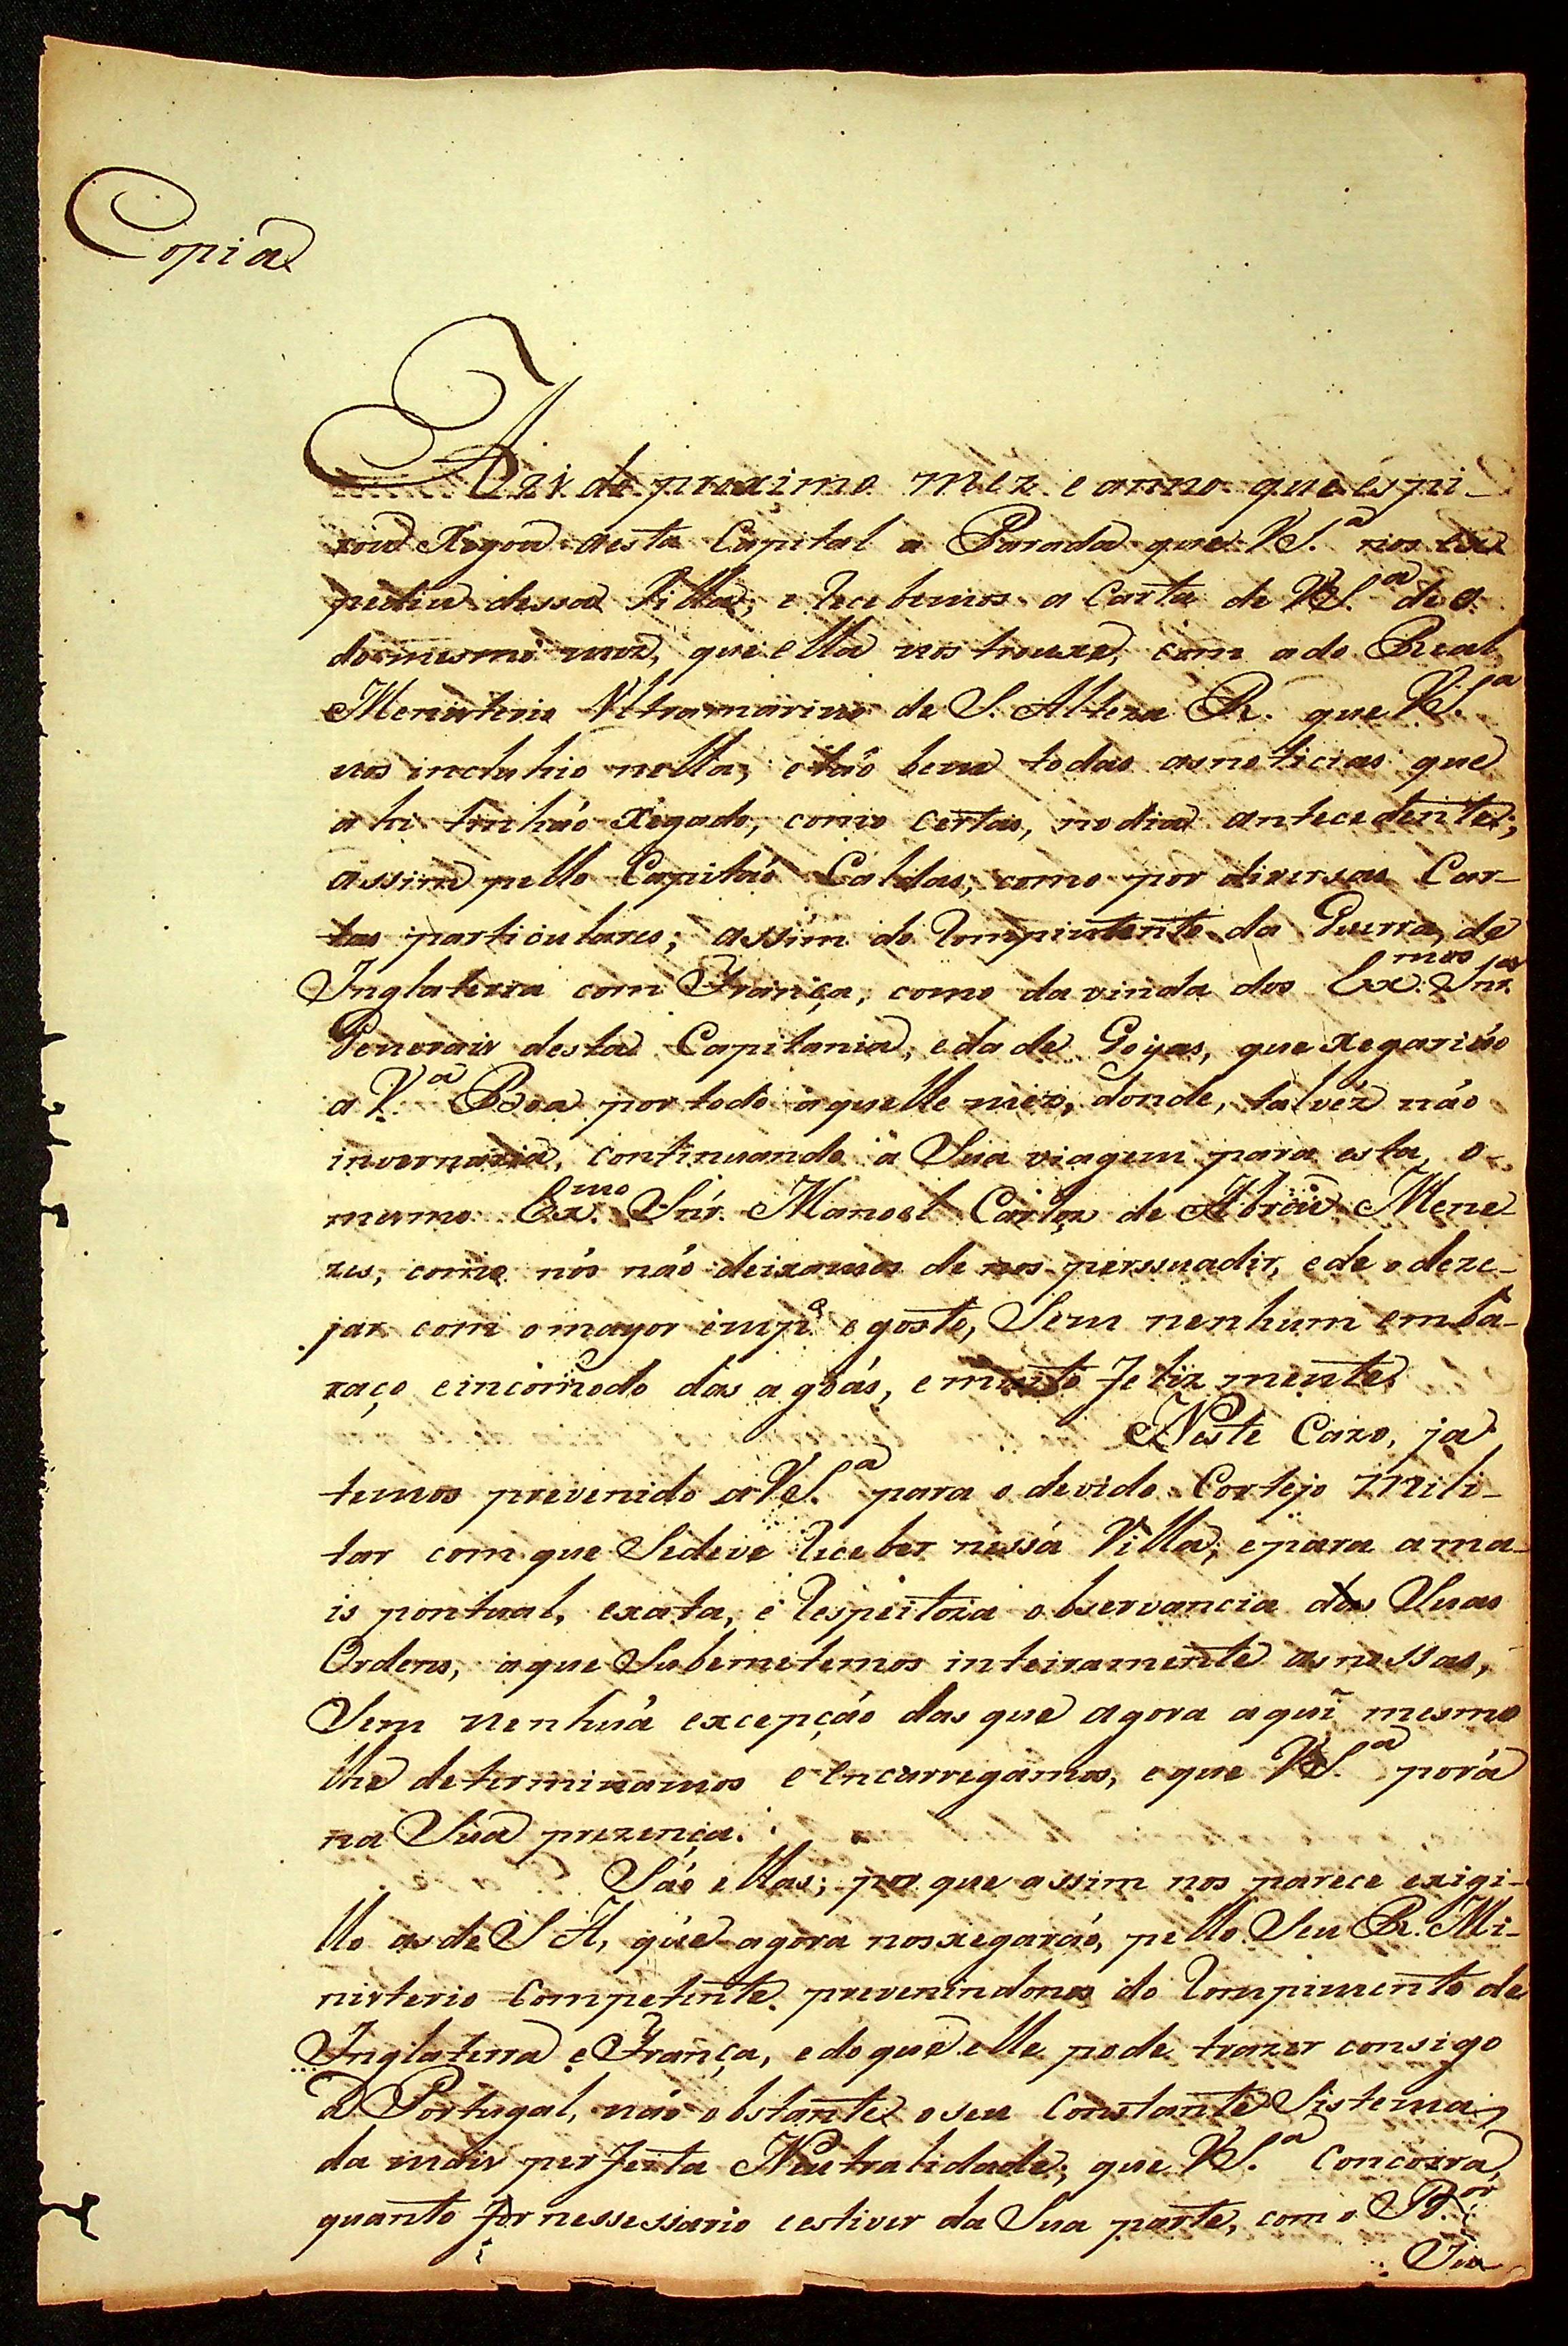 Copia
A 21 do proximo mez e anno que espi-
rou Xegou a esta Capital a Parada que VS.ª nos ex
pediu dessa Villa; e recebemos a Carta de VS.ª de 8.
do mesmo mez, que ella nos trouxe, com a do Real
Menisterio Vltramarino de S. Alteza R. que VS.ª
nos incluhio nella, e tão bem todas as noticias que
ahi tinháo Xegado, como certas, no dia antecedente;
assim pello Capitáo Caldas, como por diversas Car-
tas particulares; assim do Rompimento da Guerra, de
Inglaterra com França, como da vinda dos Ex.mos Snr.es
Generais desta Capitania, e da de Goyas, que xegariáo
a V.ª Boa por todo aquelle mez, donde, talvéz náo
invernaria, continuando a Sua viagem para esta, o
mesmo Ex.mo Snr. Manoel Carlos de Abreu Mene
zes, como nós náo deixamos de nos perssuadir, e de o deze-
jar com o mayor emp.º e gosto, Sem nenhum emba-
raço e incomodo das agoás, e muito felizmente.
Neste Cazo, ja
temos prevenido a VS.ª para o devido Cortejo Mili-
tar com que Sedeve receber nessa Villa; e para a ma-
is pontual, exata, e respeitoza observancia das Suas
Ordens, a que Submetemos inteiramente as nossas,
Sem nenhuá excepçáo das que agora aqui mesmo
lhe determinamos e encarregámos, e que VS.ª porá
na Sua prezença.
Sáo ellas; por que assim nos parece exigi-
llo as de S A, que agora nos xegaráo, pello Seu R. Mi-
nisterio Competente. prevenindonos do Rompimento de
Inglaterra e França, e do que elle pode trazer consigo
a Portugal, náo obstante o seu Constante Sistema
da mais perfeita Neutralidade; que VS.ª Concorra,
quanto for nessessario e estiver da Sua parte, com o